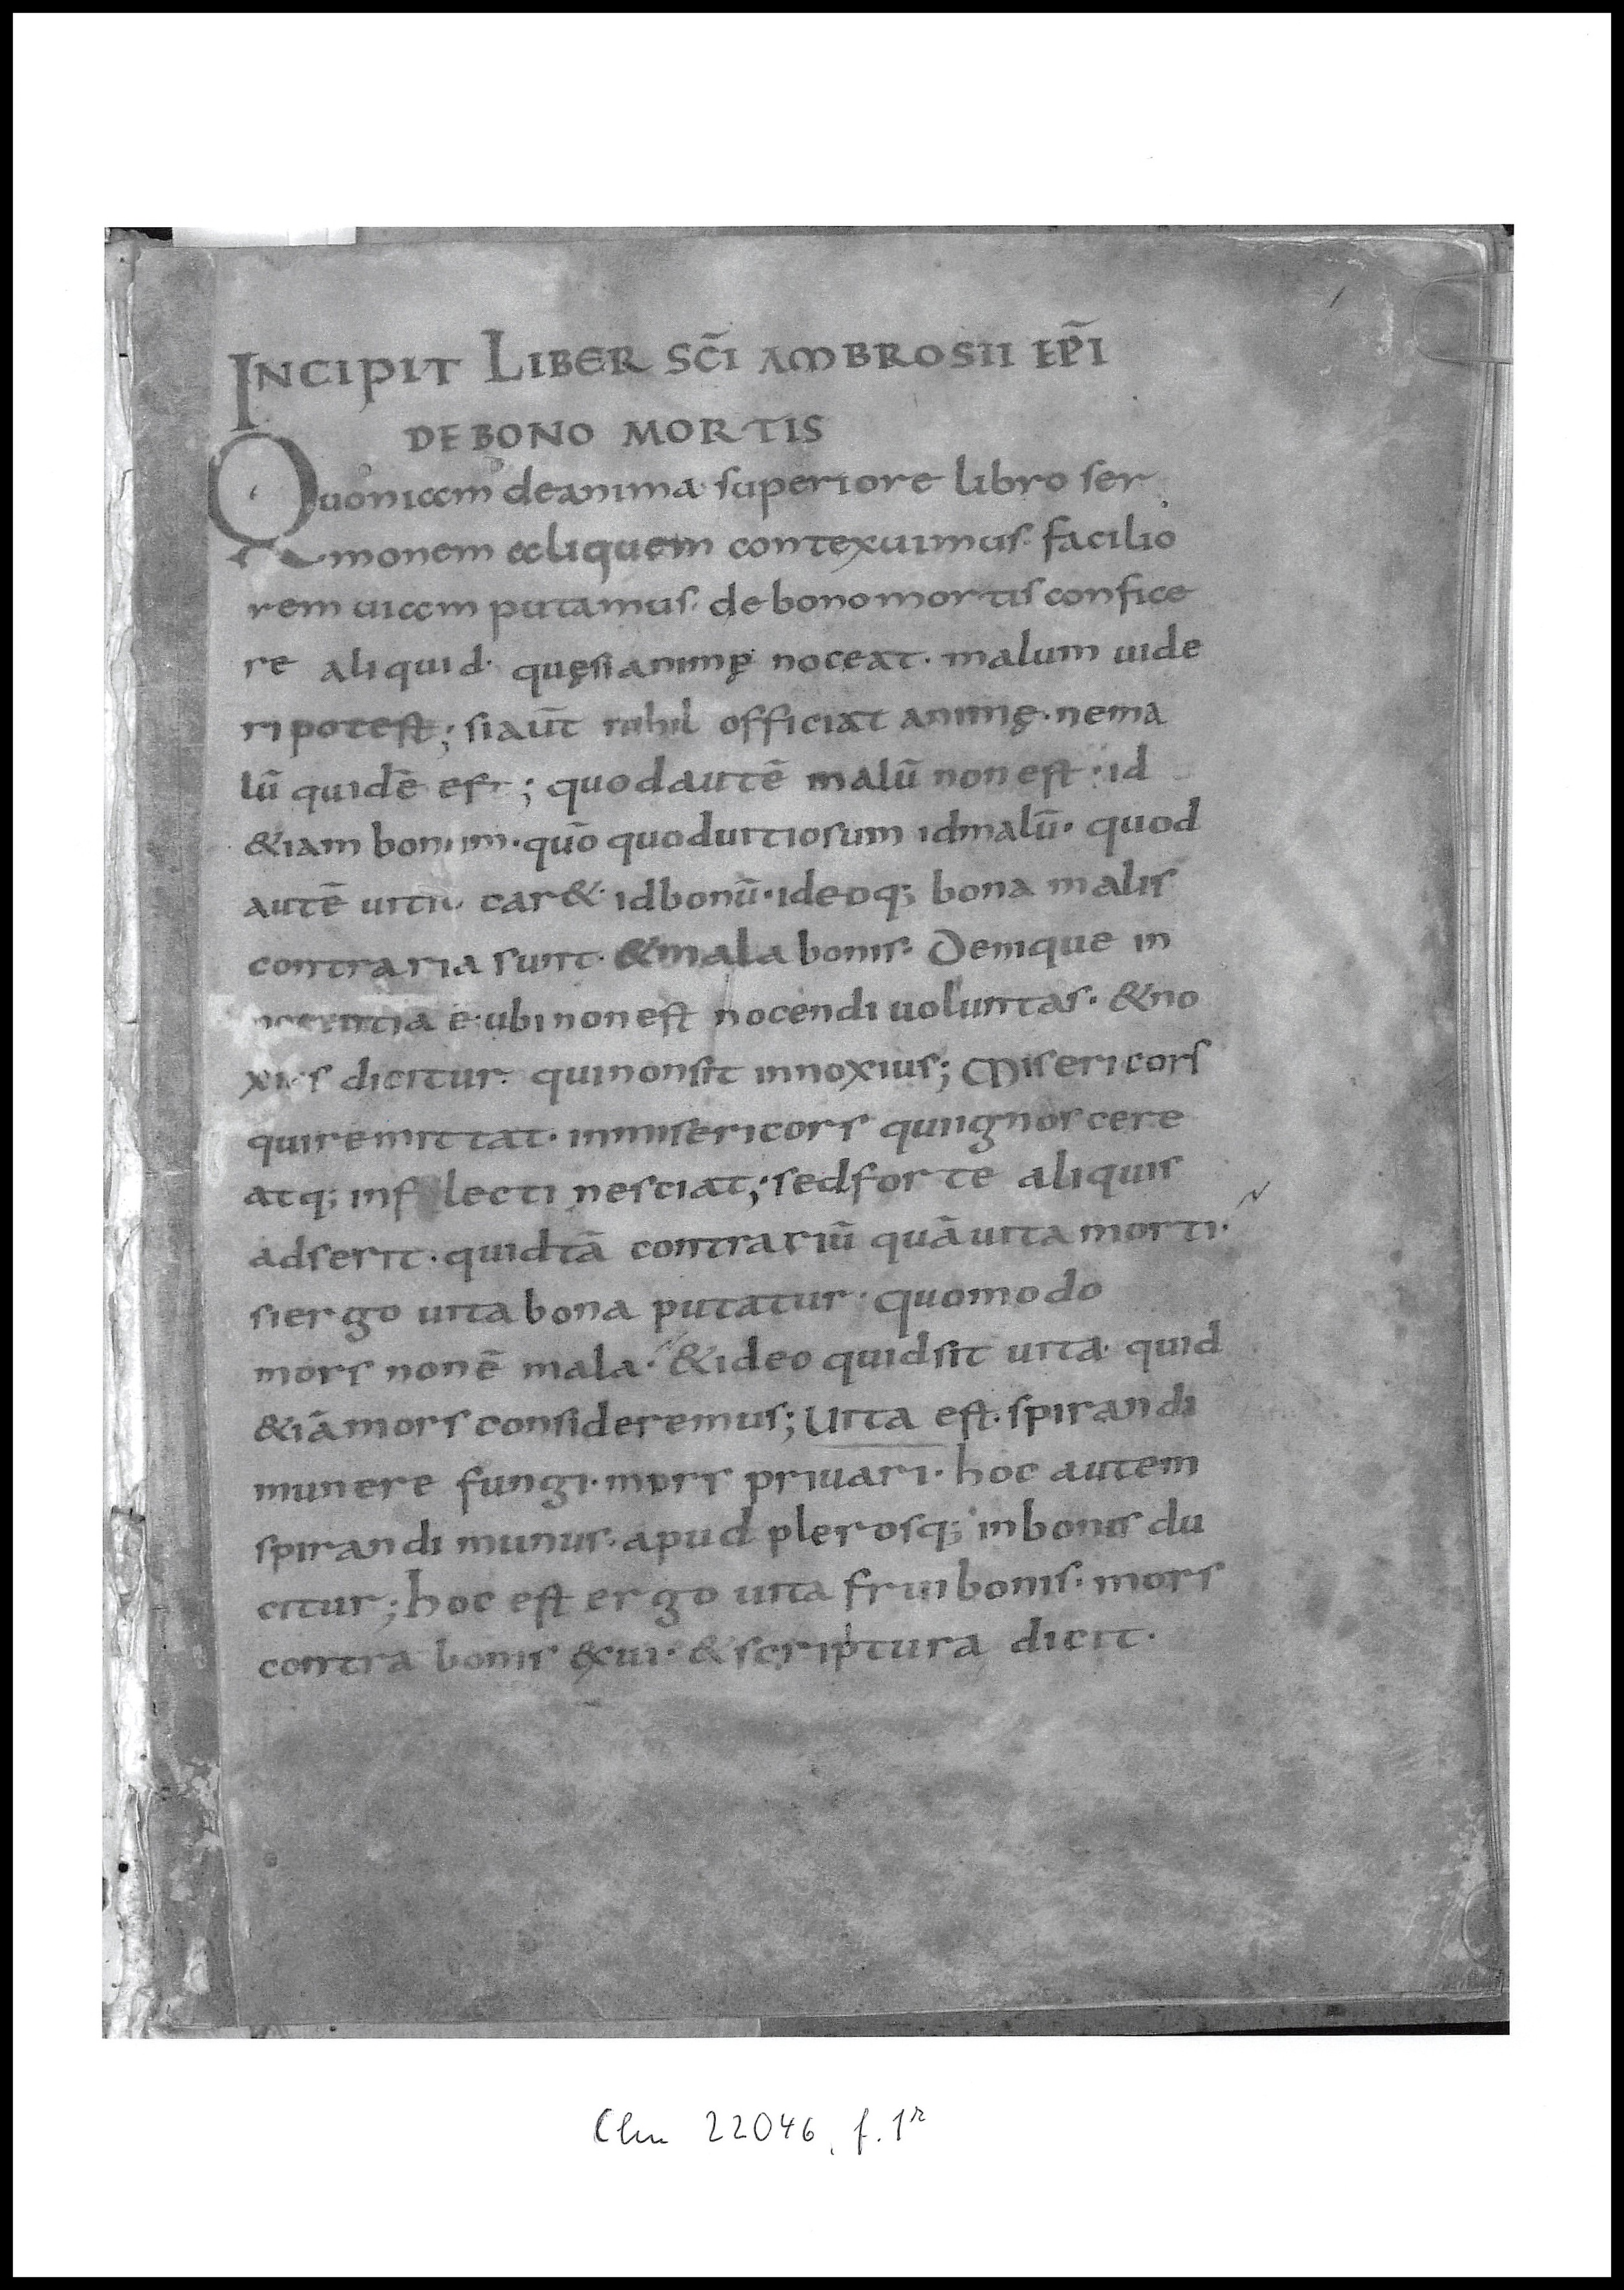 INCIPIT LIBER SC̄I AMBROSII EP̄I
DE BONO MORTIS
Quoniam de anima superiore libro ser
monem aliquem contexuimus· facilio
rem uiam putamus· de bono mortis confice
re aliquid· quę si animę noceat· malum uide
ri potest; si aūt nihil officiat animę· nema
lū quidē est; quod autē malū non est· id
&iam bonum· quō quod uitiosum id malū· quod
autē uitii car&· id bonū· ideoq; bona malis
contraria sunt· & mala bonis· Denique in
nocentia ē· ubi non est nocendi uoluntas· & no
xius dicitur· qui non sit innoxius; Misericors
qui remittat· inmisericors qui ignoscere
atq; inflecti nesciat; sed forte aliquis
adserit· quid tā contrariū quā uita morti·
si ergo uita bona putatur· quomodo
mors non ē mala· & ideo quid sit uita· quid
&iā mors consideremus; Uita est· spirandi
munere fungi· mors priuari· hoc autem
spirandi munus· apud plerosq; in bonis du
citur; hoc est ergo uita frui bonis· mors
contra bonis exui· & scriptura dicit·
Clm 22046, f. 1r